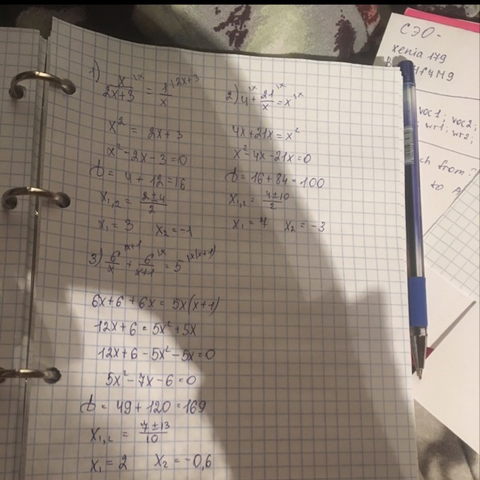 1) x/(2x+3) = 1/x
x² = 2x+3
x²-2x-3=0
D = 4+12=16
x₁,₂ = (2±4)/2
x₁ = 3 x₂ = -1
2) 4 + 21/x = x
4x+21x=x²
x²-4x-21x=0
D = 16+84=100
x₁,₂ = (4±10)/2
x₁ = 7 x₂ = -3
3) 6/x + 6/(x+1) = 5
6x+6+6x = 5x(x+1)
12x+6=5x²+5x
12x+6-5x²-5x=0
5x²-7x-6=0
D = 49+120=169
x₁,₂ = (7±13)/10
x₁ = 2 x₂ = -0,6
СЭО-
xenia 179
voc1; voc2;
wr1; wr2;
from
to